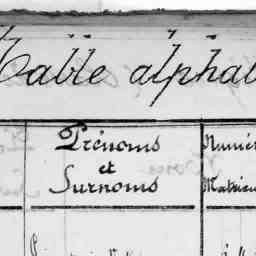 Table alphab
Prénoms
et
Surnoms
Numér
Matricu